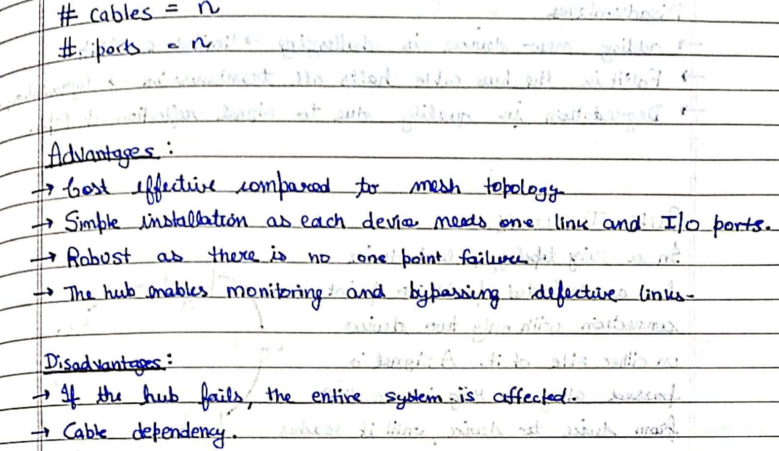 # cables = n
# ports = n
Advantages :
→ Cost effective compared to mesh topology
→ Simple installation as each device needs one link and I/O ports.
→ Robust as there is no one point failure
→ The hub enables monitoring and bypassing defective links.
Disadvantages :
→ If the hub fails, the entire system is affected.
→ Cable dependency.